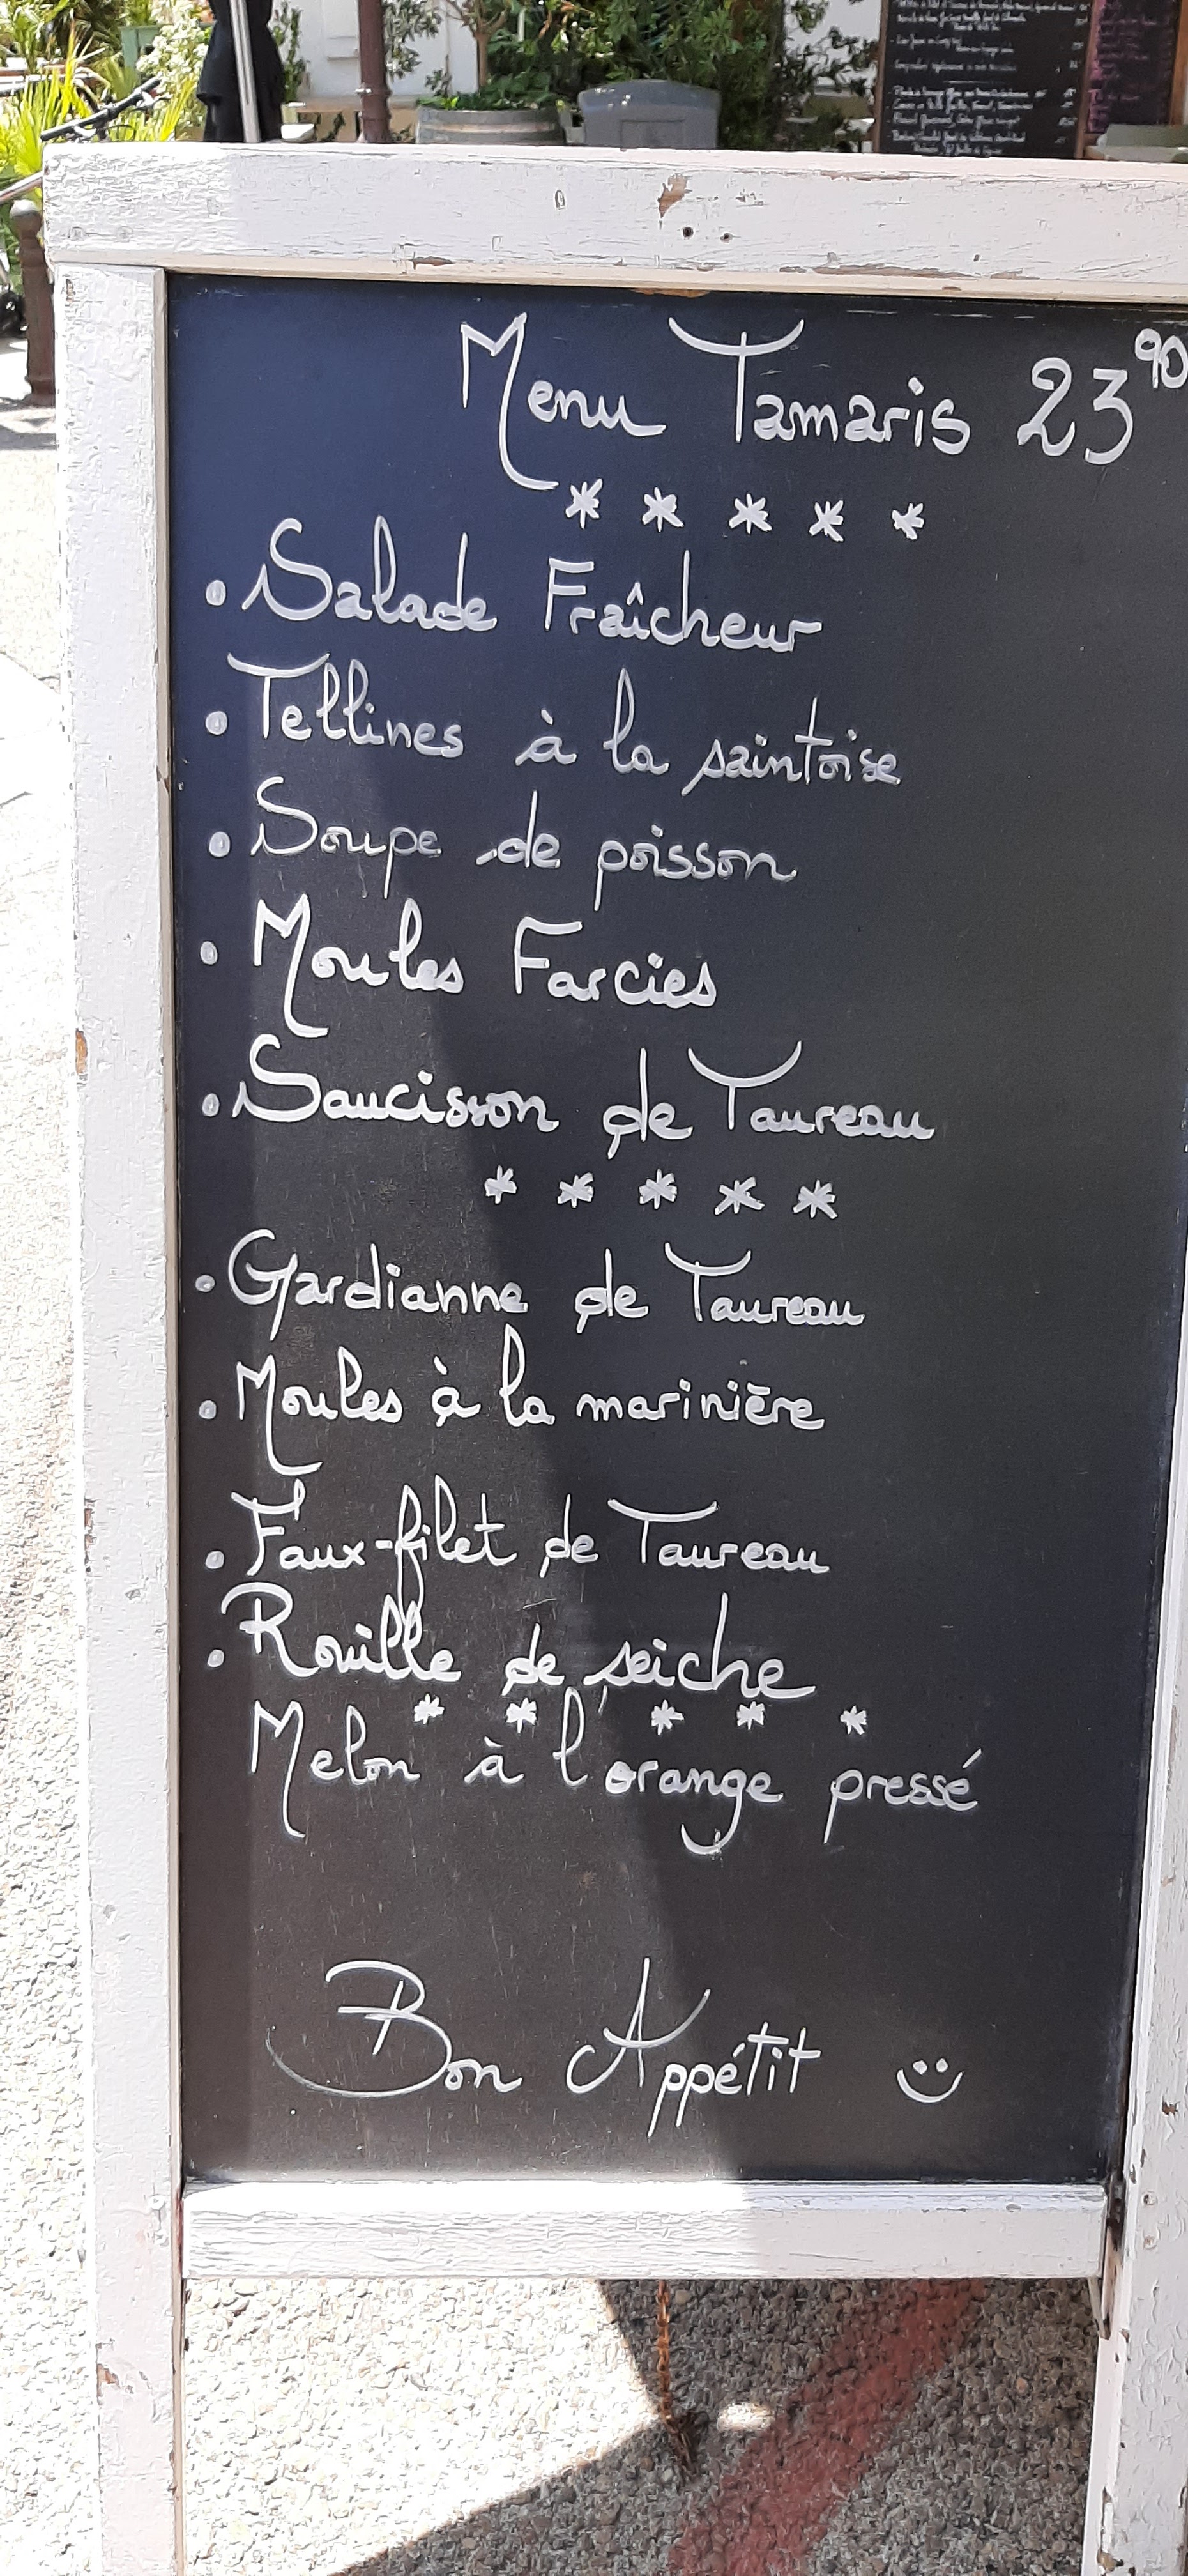 Menu Tamaris 23⁹⁰
* * * * *
• Salade Fraîcheur
• Tellines à la saintoise
• Soupe de poisson
• Moules Farcies
• Saucisson de Taureau
* * * * *
• Gardianne de Taureau
• Moules à la marinière
• Faux-filet de Taureau
• Rouille de seiche
* * * * *
Melon à l'orange pressé
Bon Appétit